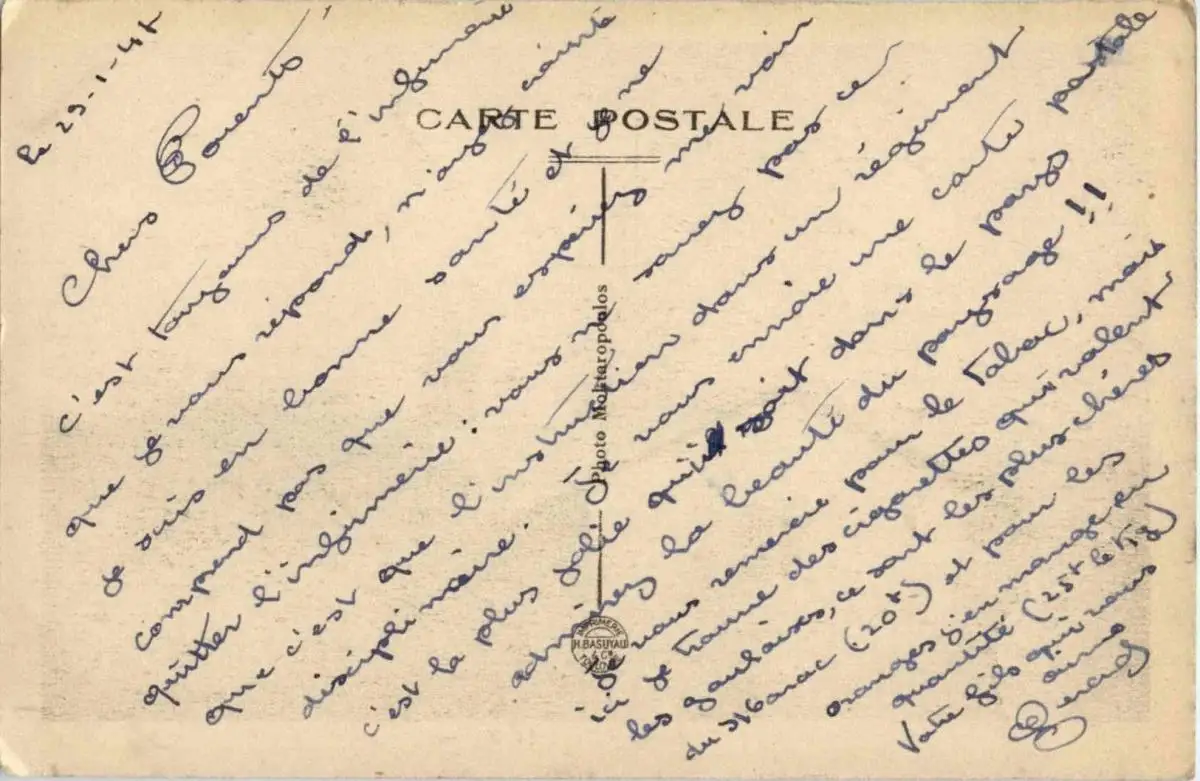 le 29-1-47
Chers Parents,
c'est toujours de l'infirmerie
que je vous répond, n'ayez crainte
je suis en bonne santé et je ne
comprend pas que vous espériez me voir
quitter l'infirmerie : vous ne savez pas ce
que c'est que l'instruction dans un régiment
disciplinaire. Je vous envoie une carte postale
c'est la plus jolie qu'il soit dans le pays
admirez la beauté du paysage !!
je vous remercie pour le tabac, mais
ici je trouve des cigarettes qui valent
les gauloises, ce sont les plus chères
du (20f) et pour les
oranges j'en mange en
quantité (25f le kg)
Votre fils qui vous
aime
CARTE POSTALE
Photo Molataropoulos
IMPRIMERIE
H. BASUYAU
& Cie
TOULOUSE